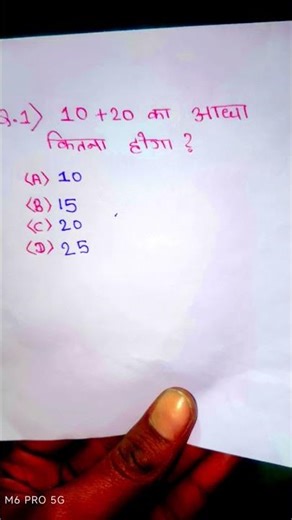 Q.1) 10 + 20 का आधा
कितना होगा ?
(A) 10
(B) 15
(C) 20
(D) 25
M6 PRO 5G